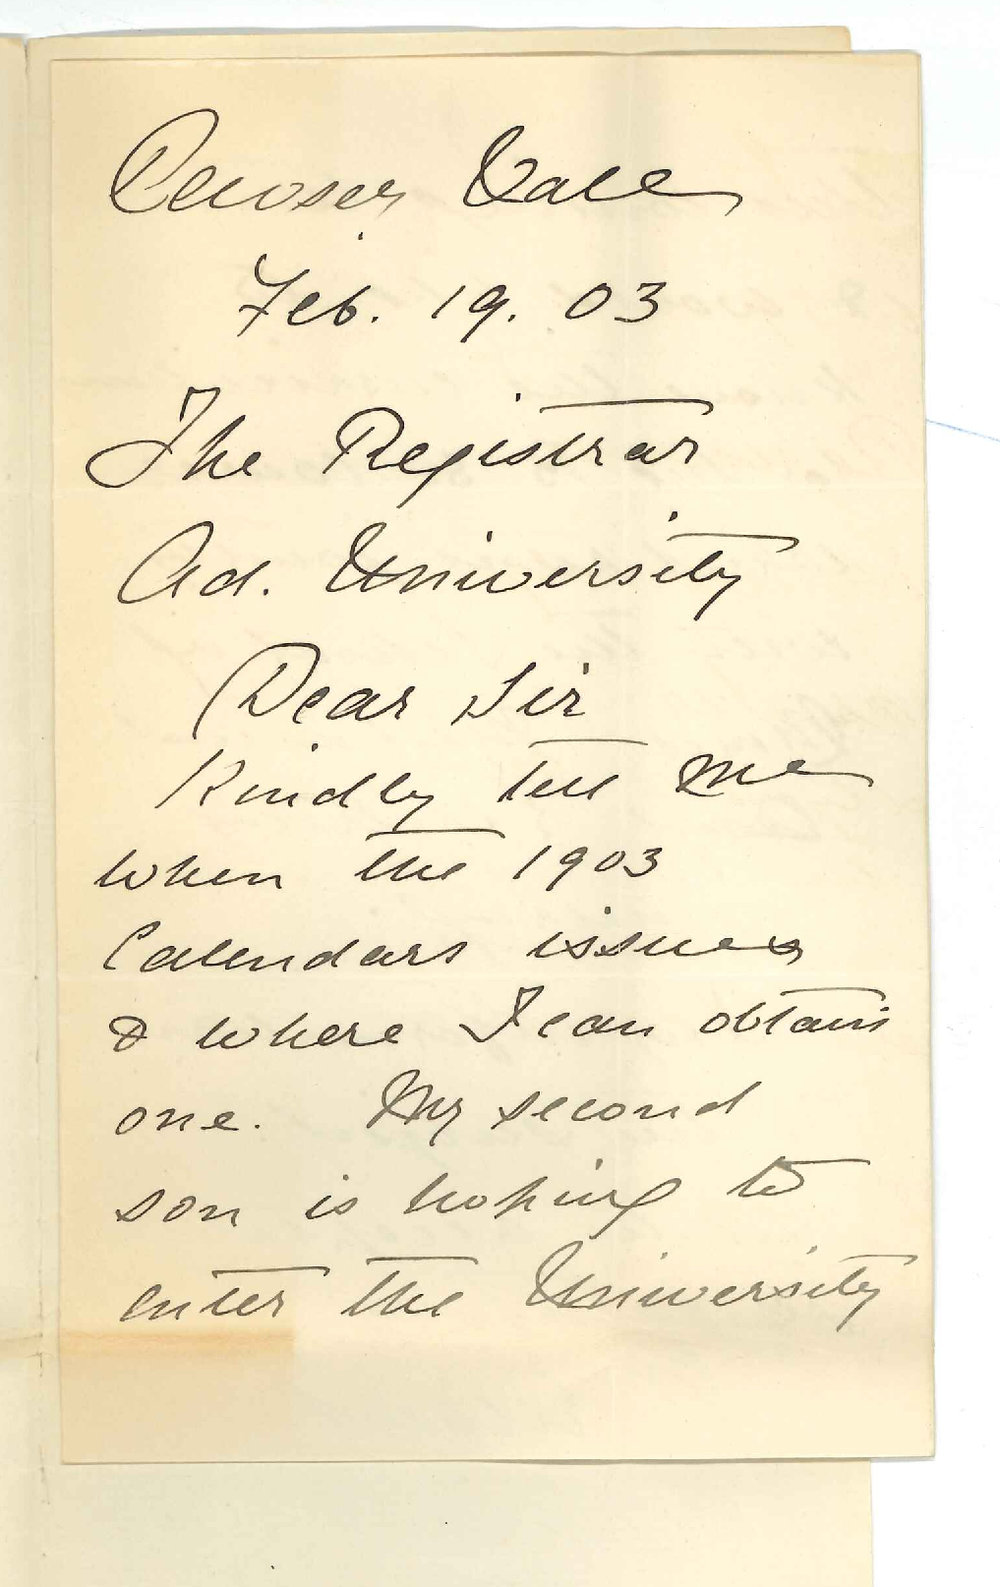 Penwsey Vale
Feb. 19. 03
The Registrar
Ad. University
Dear Sir
Kindly tell me
when the 1903
Calendars issues
& where I can obtain
one. My second
son is hoping to
enter the University